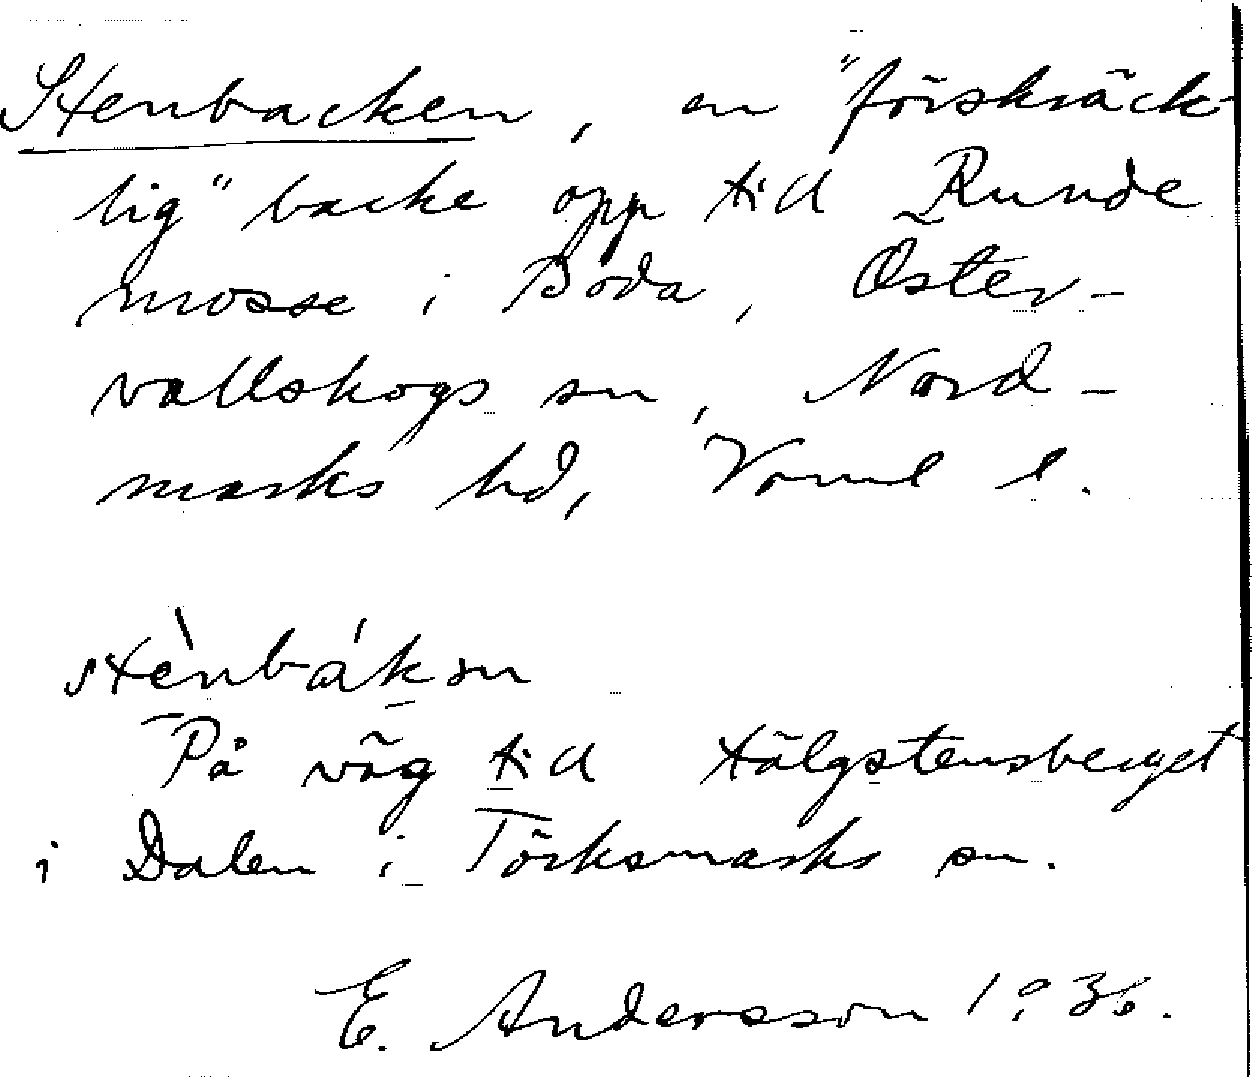 Stenbacken, en "förskräck-
lig" backe opp till Runde
mosse i Boda, Öster-
vallskogs sn, Nord-
marks hd, Värml l.
stènbák
På väg till Hälgstensberget
i Dalen i Töcksmarks sn.
E. Andersson 1936.